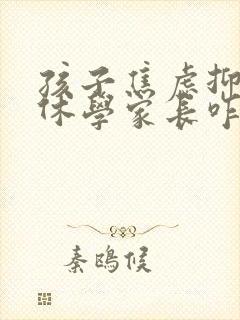 孩子焦虑抑
休學家長咋
秦鴎候